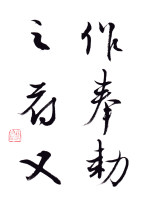 作奉勅
之又